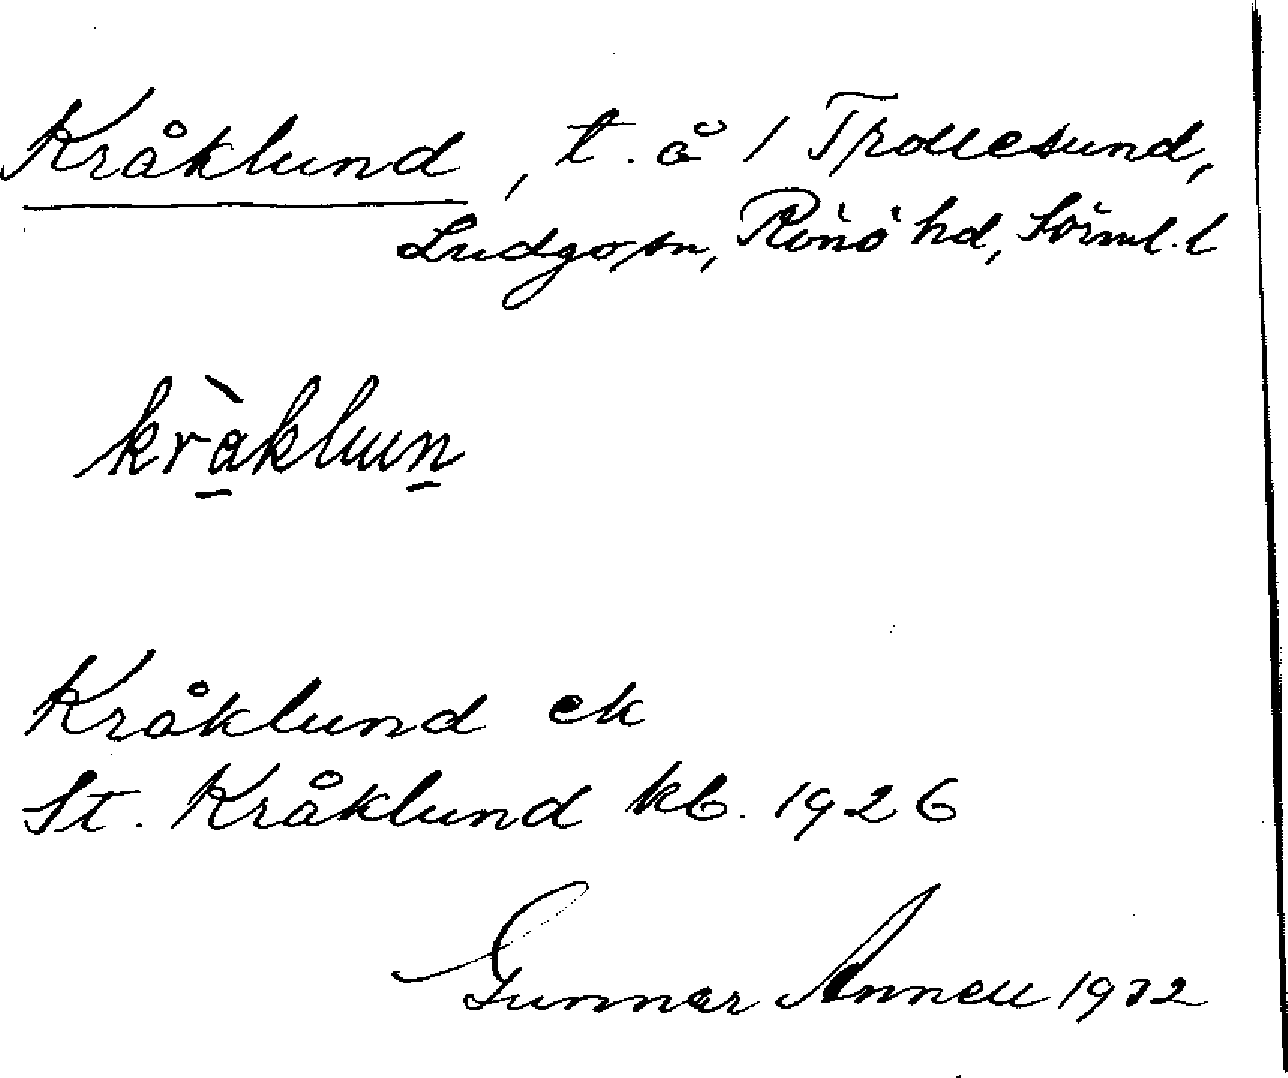 Kråklund, t. å / Trollesund,
Ludgo sn, Rönö hd, Sörml. l
kràklun
Kråklund ek
St. Kråklund kb. 1926
Gunnar Annell 1932